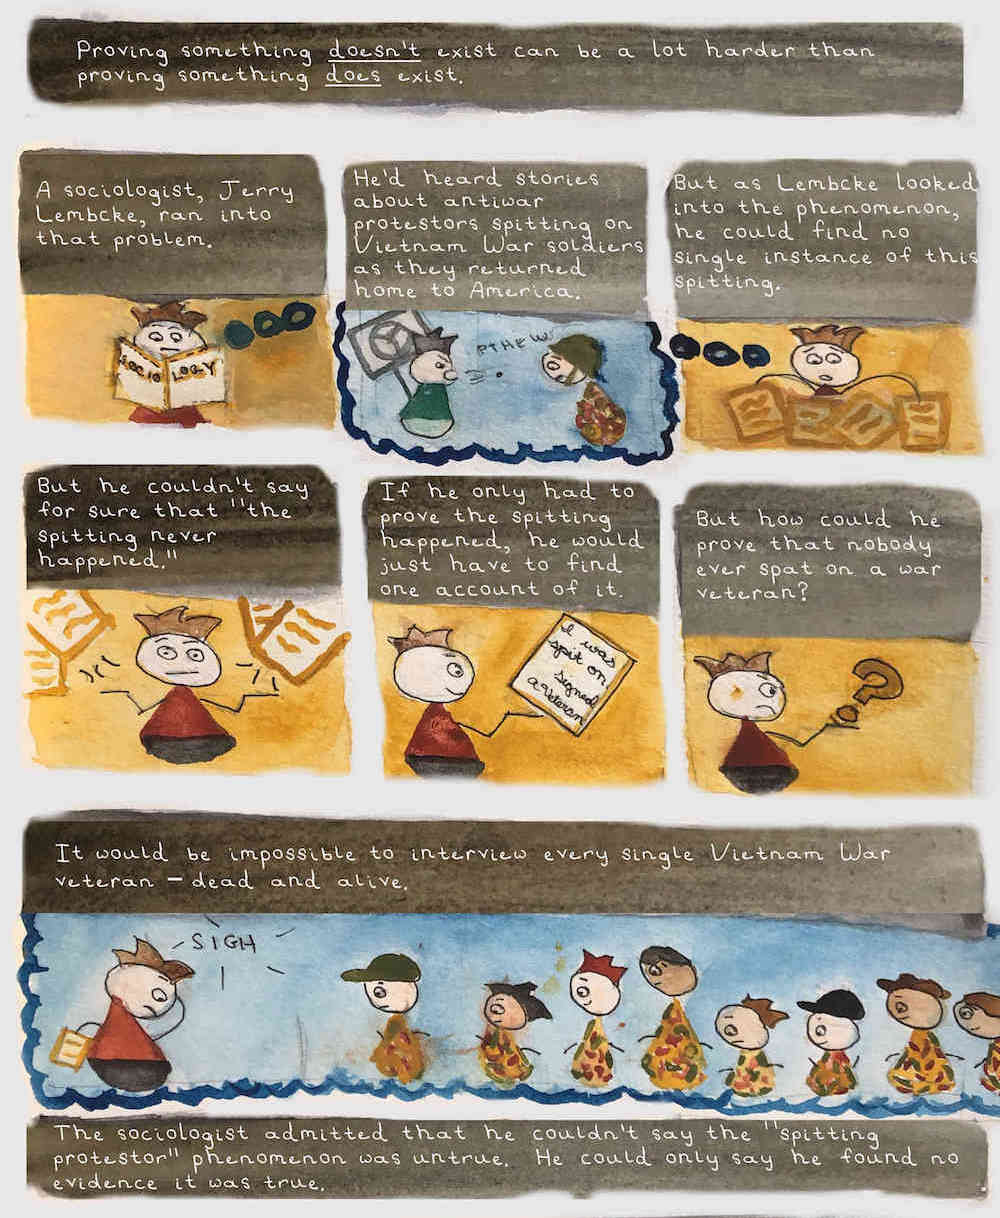 Proving something doesn't exist can be a lot harder than
proving something does exist.
A sociologist, Jerry
Lembcke, ran into
that problem.
SOCIO LOGY
He'd heard stories
about antiwar
protestors spitting on
Vietnam War soldiers
as they returned
home to America.
PTHEW!
But as Lembcke looked
into the phenomenon,
he could find no
single instance of this
spitting.
But he couldn't say
for sure that "the
spitting never
happened."
If he only had to
prove the spitting
happened, he would
just have to find
one account of it.
I was
spit on
signed
a veteran
But how could he
prove that nobody
ever spat on a war
veteran?
It would be impossible to interview every single Vietnam War
veteran – dead and alive.
SIGH
The sociologist admitted that he couldn't say the "spitting
protestor" phenomenon was untrue. He could only say he found no
evidence it was true.